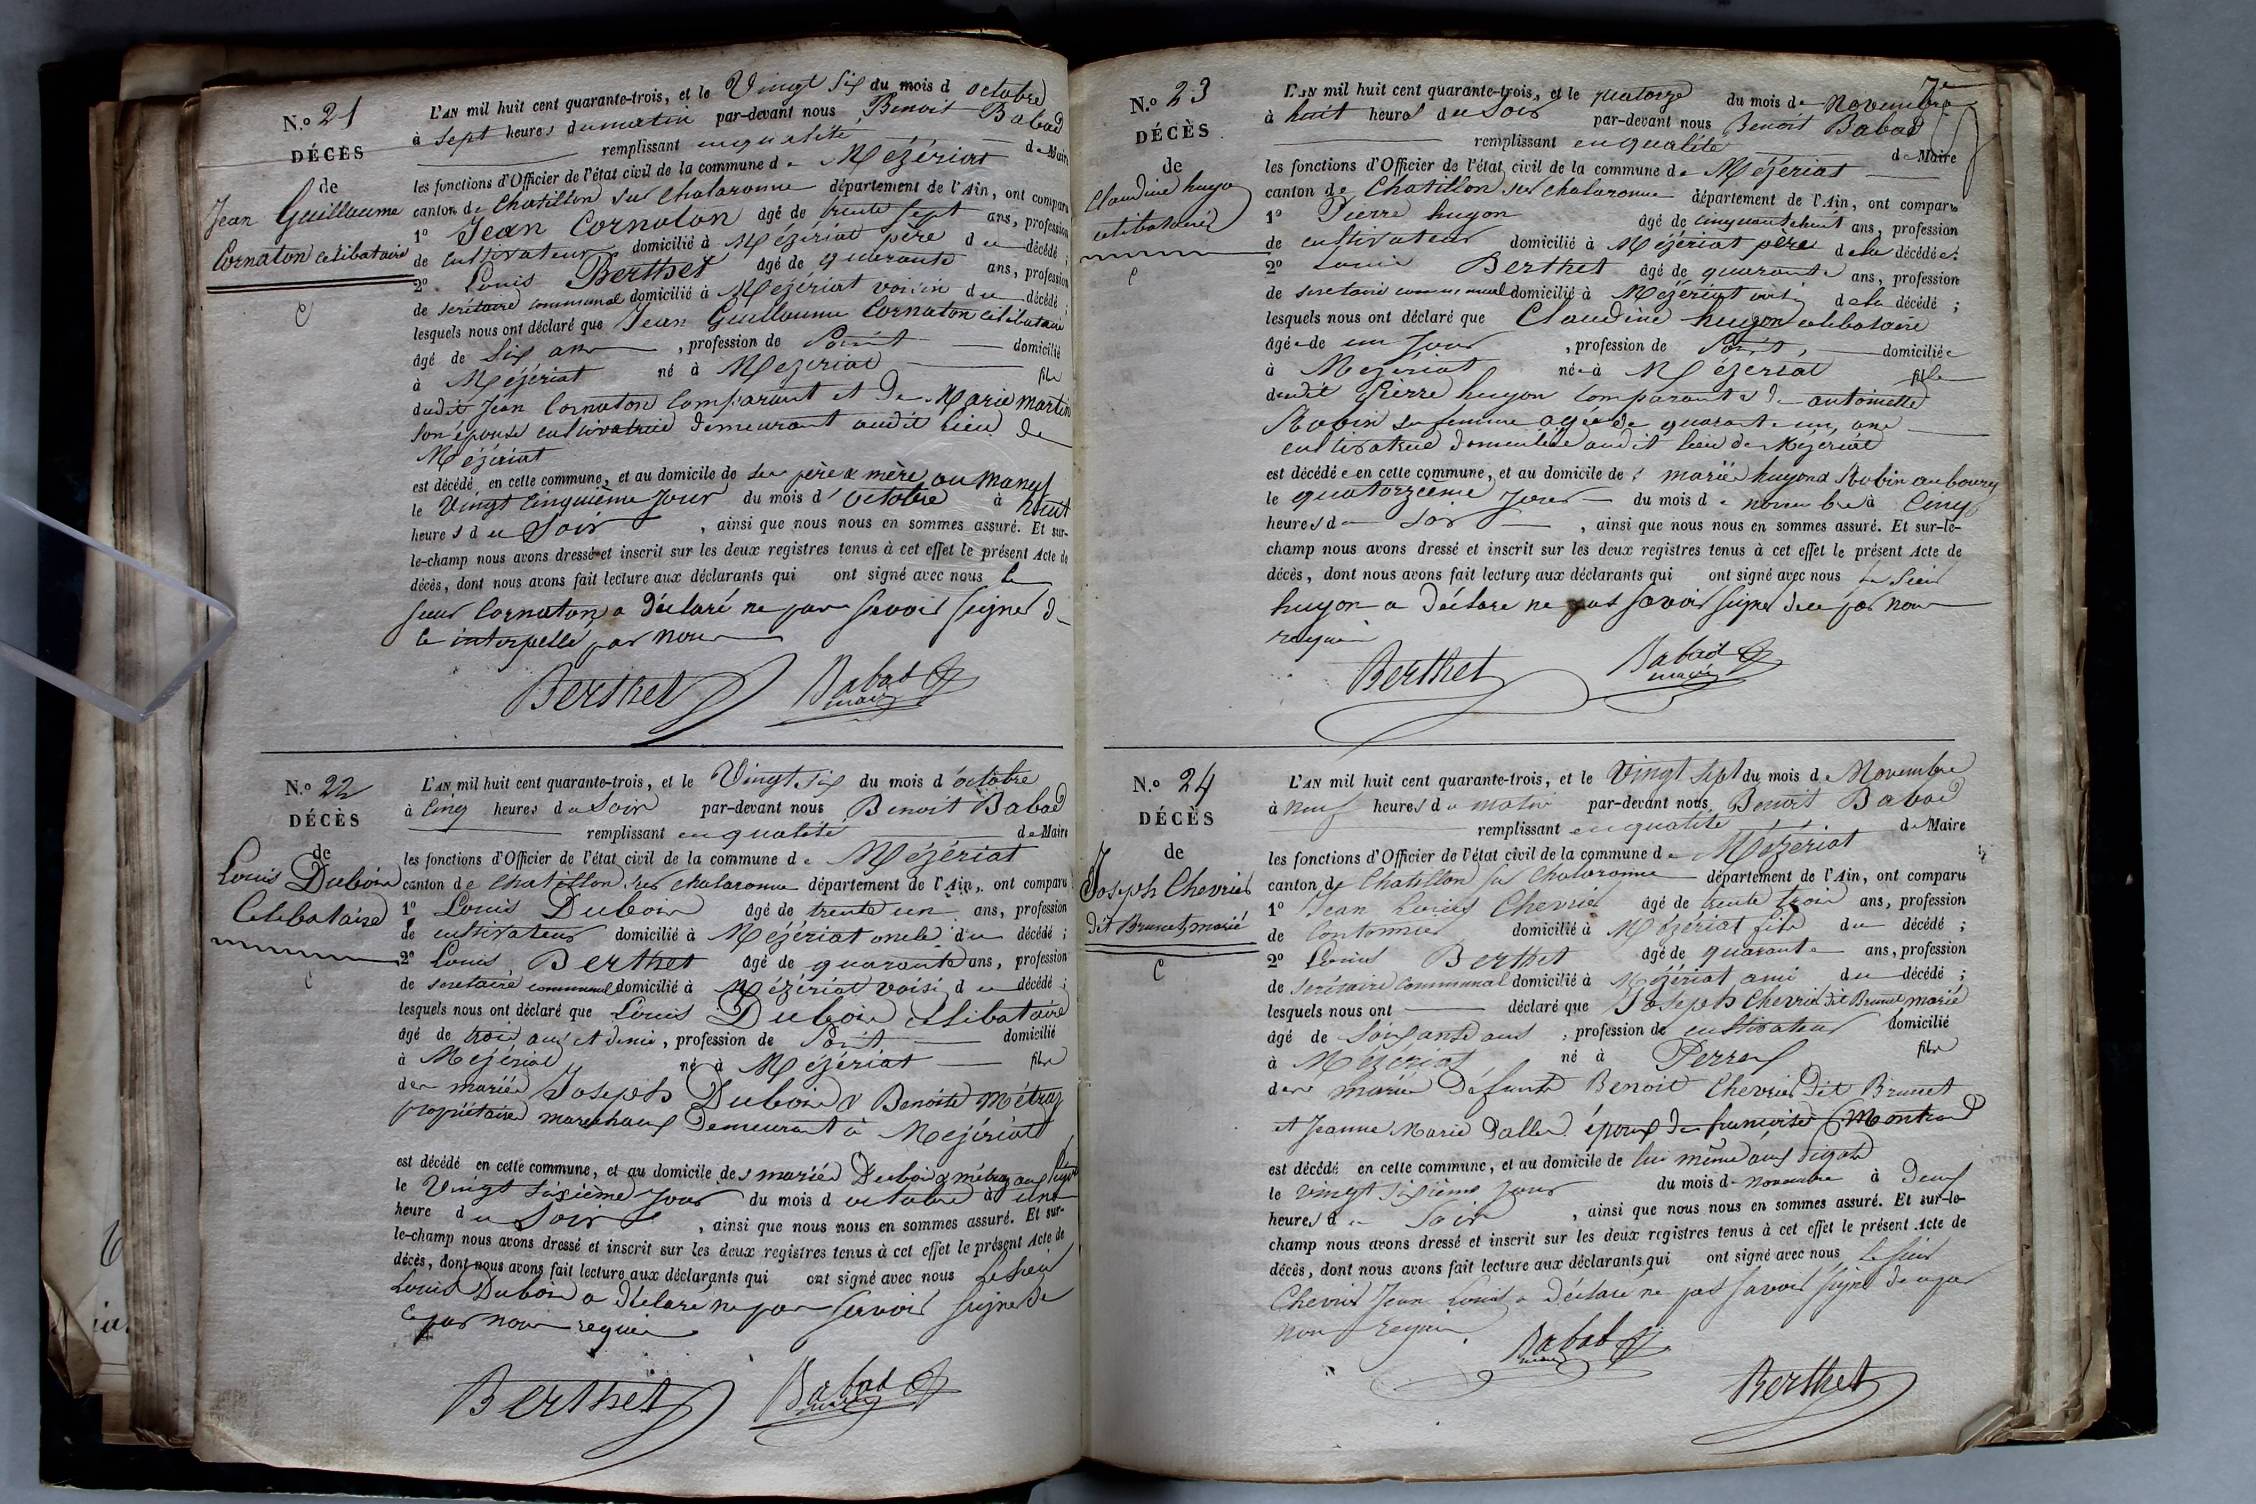 N.o 21
DÉCÈS
de
Jean Guillaume
Cornaton celibataire
C
L'AN mil huit cent quarante-trois, et le Vingt Six du mois d octobre
à Sept heures du matin par-devant nous Benoit Babad
remplissant en qualité de Maire
les fonctions d'Officier de l'état civil de la commune de Mézériat
canton de Chatillon sur Chalaronne département de l'Ain, ont comparu
1o Jean Cornaton âgé de trente Sept ans, profession
de cultivateur domicilié à Mézériat père du décédé ;
2o Louis Berthet âgé de quarante ans, profession
de secrétaire communal domicilié à Mézériat voisin du décédé ;
lesquels nous ont déclaré que Jean Guillaume Cornaton célibataire
âgé de Six ans , profession de domicilié
à Mézériat né à Mézériat fils
dudit Jean Cornaton Comparant et De Marie Martin
son épouse cultivatrice demeurant audit lieu de
Mézériat
est décédé en cette commune, et au domicile de ses père & mère au
le Vingt Cinquième Jour du mois d'octobre à huit
heures du Soir , ainsi que nous nous en sommes assuré. Et sur-
le-champ nous avons dressé et inscrit sur les deux registres tenus à cet effet le présent Acte de
décès, dont nous avons fait lecture aux déclarants qui ont signé avec nous le
sieur Cornaton a déclaré ne pas savoir signer de
ce interpellé par nous
Berthet Babad
maire
N.o 22
DÉCÈS
de
Louis Duboin
Celibataire
C
L'AN mil huit cent quarante-trois, et le Vingt Six du mois d'octobre
à Cinq heures du Soir par-devant nous Benoit Babad
remplissant en qualité de Maire
les fonctions d'Officier de l'état civil de la commune de Mézériat
canton de Chatillon sur Chalaronne département de l'Ain, ont comparu
1o Louis Duboin âgé de trente un ans, profession
de cultivateur domicilié à Mézériat oncle du décédé ;
2o Louis Berthet âgé de quarante ans, profession
de secretaire communal domicilié à Mézériat voisi du décédé ;
lesquels nous ont déclaré que Louis Duboin célibataire
âgé de trois ans et demie , profession de domicilié
à Mézériat né à Mézériat fils
des mariés Joseph Duboin & Benoite Métraz
propriétaires marechaux Demeurant à Mézériat
est décédé en cette commune, et au domicile des mariés Duboin & métraz aux
le Vingt Sixième Jour du mois d octobre à une
heure du Soir , ainsi que nous nous en sommes assuré. Et sur-
le-champ nous avons dressé et inscrit sur les deux registres tenus à cet effet le présent Acte de
décès, dont nous avons fait lecture aux déclarants qui ont signé avec nous Le Sieur
Louis Duboin a déclaré ne pas savoir signer de
ce par nous requis
Berthet Babad
maire
7e
N.o 23
DÉCÈS
de
Claudine hugon
celibataire
C
L'AN mil huit cent quarante-trois, et le quatorze du mois de Novembre
à huit heures du Soir par-devant nous Benoit Babad
remplissant en qualité de Maire
les fonctions d'Officier de l'état civil de la commune de Mézériat
canton de Chatillon sur chalaronne département de l'Ain, ont comparu
1o Pierre hugon âgé de cinquante huit ans, profession
de cultivateur domicilié à Mézériat père de la décédée ;
2o Louis Berthet âgé de quarante ans, profession
de secretaire communal domicilié à Mézériat de la décédé ;
lesquels nous ont déclaré que Claudine hugon celibataire
âgée de un Jour , profession de domiciliée
à Mézériat née à Mézériat fille
dudit Pierre hugon Comparant & De antoinette
Robin sa femme agée de quarante un ans
cultivatrice domiciliée audit lieu de Mézériat
est décédée en cette commune, et au domicile des mariés hugon & Robin au bourg
le quatorzième Jour du mois de novembre à Cinq
heures du Soir , ainsi que nous nous en sommes assuré. Et sur-le-
champ nous avons dressé et inscrit sur les deux registres tenus à cet effet le présent Acte de
décès, dont nous avons fait lecture aux déclarants qui ont signé avec nous Le Sieur
hugon a déclaré ne pas savoir signer de ce par nous
requis
Berthet Babad
maire
N.o 24
DÉCÈS
de
Joseph Chevrier
dit Brunet, marié
C
L'AN mil huit cent quarante-trois, et le Vingt Sept du mois de Novembre
à neuf heures du matin par-devant nous Benoit Babad
remplissant en qualité de Maire
les fonctions d'Officier de l'état civil de la commune de Mézériat
canton de Chatillon sur Chalaronne département de l'Ain, ont comparu
1o Jean Louis Chevrier âgé de trente trois ans, profession
de Cantonnier domicilié à Mézériat fils du décédé ;
2o Louis Berthet âgé de quarante ans, profession
de secrétaire Communal domicilié à Mézériat ami du décédé ;
lesquels nous ont déclaré que Joseph Chevrier dit Brunet marié
âgé de soixante ans , profession de cultivateur domicilié
à Mézériat né à Perrex fils
des mariés Défunts Benoit Chevrier Dit Brunet
et Jeanne Marie Pallen époux de françoise Montrad
est décédé en cette commune, et au domicile de lui même aux
le vingt Sixième Jour du mois de novembre à Deux
heures du Soir , ainsi que nous nous en sommes assuré. Et sur-le-
champ nous avons dressé et inscrit sur les deux registres tenus à cet effet le présent Acte de
décès, dont nous avons fait lecture aux déclarants qui ont signé avec nous le sieur
Chevrier Jean Louis a déclaré ne pas savoir signer de ce par
nous requis
Babad
maire
Berthet